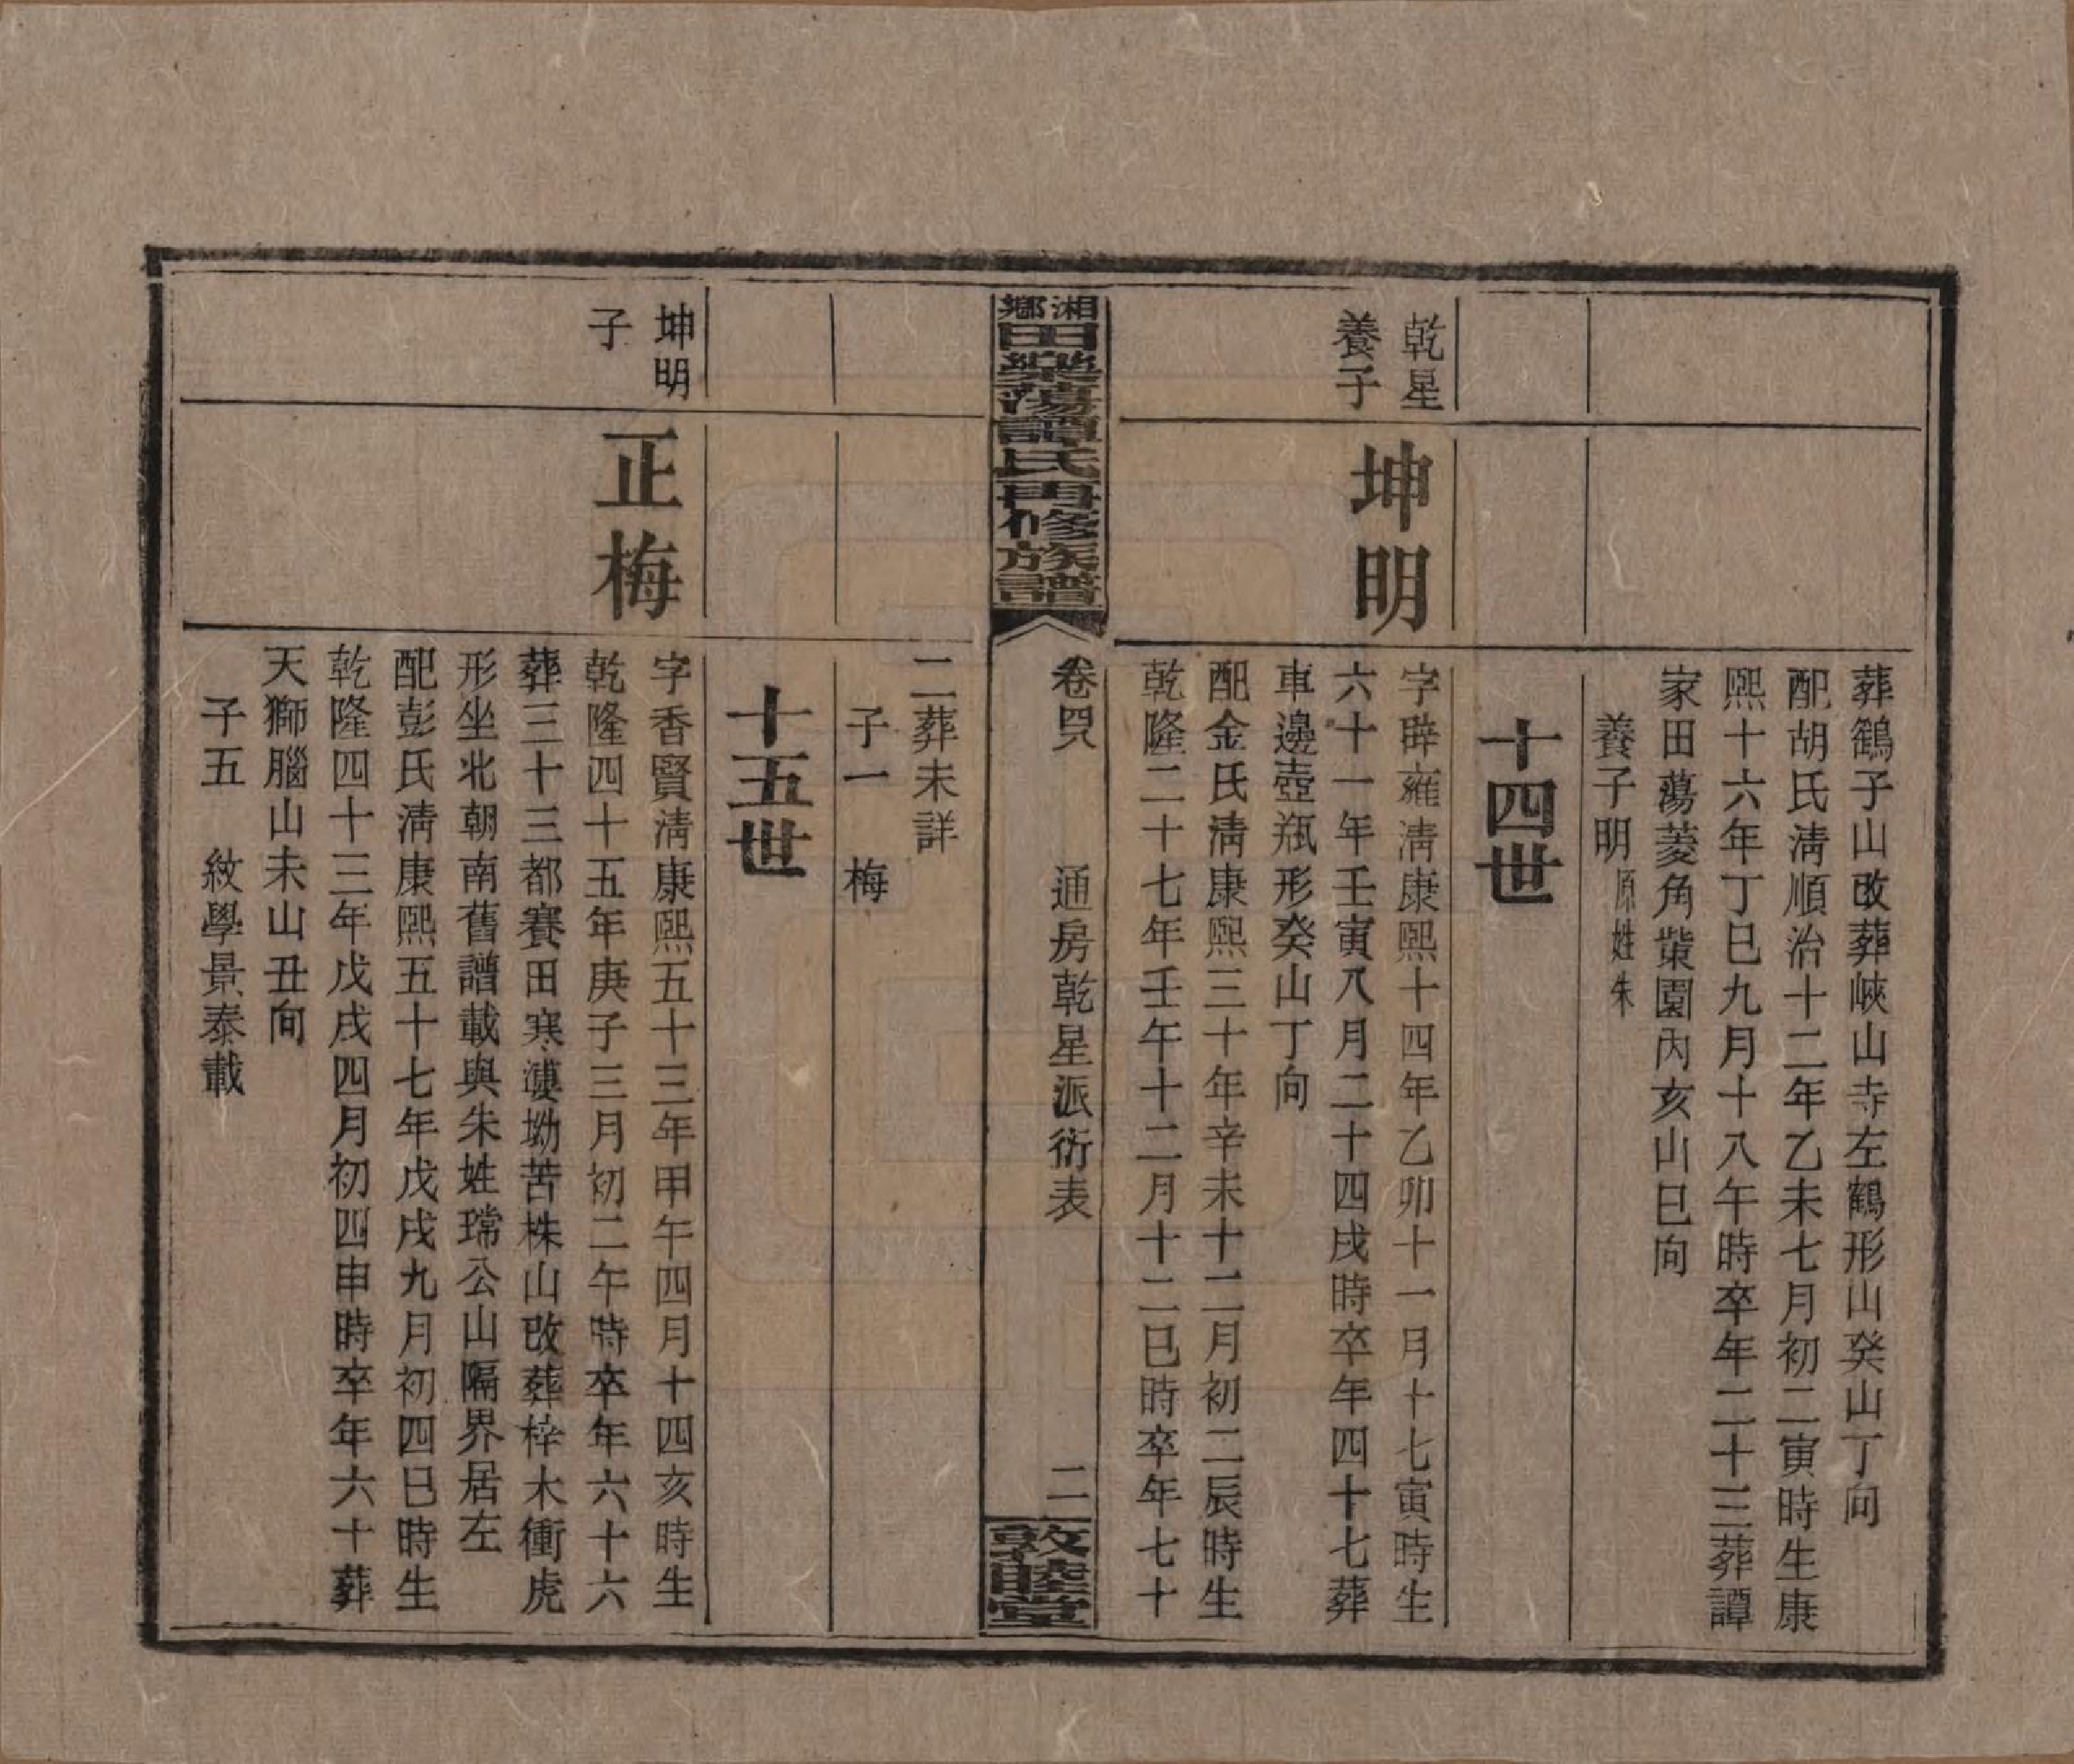 葬鶴子山改葬峽山寺左鶴形山癸山丁向
配胡氏淸順治十二年乙未七月初二寅時生康
熙十六年丁巳九月十八午時卒年二十三葬譚
家田蕩菱角柴園內亥山巳向
養子明原姓朱
十四世
乾星
養子
坤明
字辟雍淸康熙十四年乙卯十一月十七寅時生
六十一年壬寅八月二十四戌時卒年四十七葬
車邊壺瓶形癸山丁向
配金氏淸康熙三十年辛未十二月初二辰時生
乾隆二十七年壬午十二月十二巳時卒年七十
湘鄉田樂蕩譚氏再修族譜
卷四 通房乾星派衍表 二
敦睦堂
二葬未詳
子一 梅
十五世
坤明
子
正梅
字香賢淸康熙五十三年甲午四月十四亥時生
乾隆四十五年庚子三月初二午時卒年六十六
葬三十三都賽田寒漊坳苦株山改葬梓木衝虎
形坐北朝南舊譜載與朱姓瑺公山隔界居左
配彭氏淸康熙五十七年戊戌九月初四巳時生
乾隆四十三年戊戌四月初四申時卒年六十葬
天獅腦山未山丑向
子五 紋學景泰載